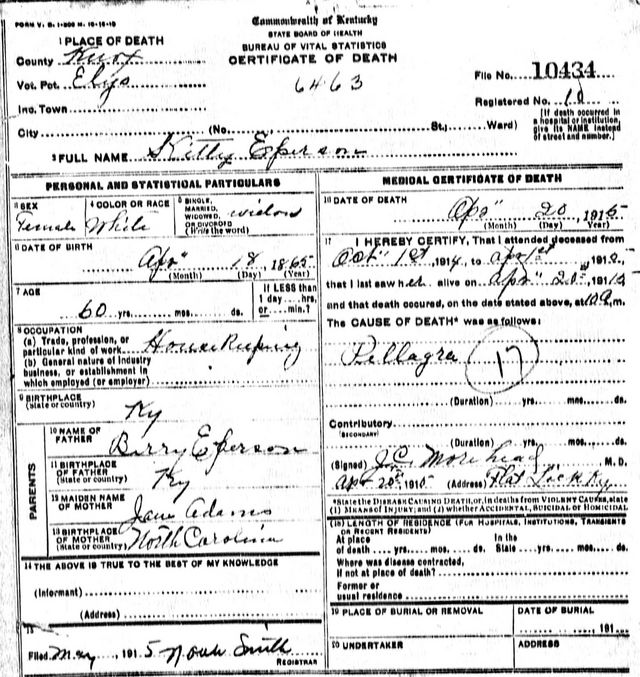 FORM V. S. 1-200 M. 10-15-10
Commonwealth of Kentucky
STATE BOARD OF HEALTH
BUREAU OF VITAL STATISTICS
CERTIFICATE OF DEATH
6463
1 PLACE OF DEATH
County Knox
Vot. Pct. Elys
Inc. Town
File No. 10434
Registered No. 10
City (No. St.; Ward)
[If death occurred in a hospital or institution, give its NAME instead of street and number.]
2 FULL NAME Kitty Eperson
PERSONAL AND STATISTICAL PARTICULARS
3 SEX
Female
4 COLOR OR RACE
White
5 SINGLE, MARRIED, WIDOWED, OR DIVORCED (Write the word)
widow
6 DATE OF BIRTH
Apr" 18, 1865
(Month) (Day) (Year)
7 AGE
60 yrs. mos. ds.
If LESS than 1 day....hrs. or....min.?
8 OCCUPATION
(a) Trade, profession, or particular kind of work Housekeeping
(b) General nature of industry business, or establishment in which employed (or employer)
9 BIRTHPLACE
(State or country) Ky
PARENTS
10 NAME OF FATHER Berry Eperson
11 BIRTHPLACE OF FATHER (State or country) Ky
12 MAIDEN NAME OF MOTHER Jane Adams
13 BIRTHPLACE OF MOTHER (State or country) North Carolina
14 THE ABOVE IS TRUE TO THE BEST OF MY KNOWLEDGE
(Informant)
(Address)
15
Filed May, 1915 Noah Smith
REGISTRAR
MEDICAL CERTIFICATE OF DEATH
16 DATE OF DEATH
Apr" 20, 1915
(Month) (Day) (Year)
17 I HEREBY CERTIFY, That I attended deceased from
Oct" 1st, 1914, to Apr 1st, 1915,
that I last saw her alive on Apr" 20th 1915,
and that death occured, on the date stated above, at 10 a m.
The CAUSE OF DEATH* was as follows:
Pellagra
17
(Duration) yrs. mos. ds.
Contributory
(SECONDARY)
(Duration) yrs. mos. ds.
(Signed) J.C. Morehead M. D.
Apr 20th 1915 (Address) Flat Lick Ky
*State the DISEASE CAUSING DEATH, or, in deaths from VIOLENT CAUSES, state
(1) MEANS OF INJURY; and (2) whether ACCIDENTAL, SUICIDAL or HOMICIDAL
(18) LENGTH OF RESIDENCE (FOR HOSPITALS, INSTITUTIONS, TRANSIENTS OR RECENT RESIDENTS)
At place of death yrs. mos. ds. In the State yrs. mos. ds.
Where was disease contracted,
if not at place of death?
Former or
usual residence
19 PLACE OF BURIAL OR REMOVAL
DATE OF BURIAL
191
20 UNDERTAKER
ADDRESS